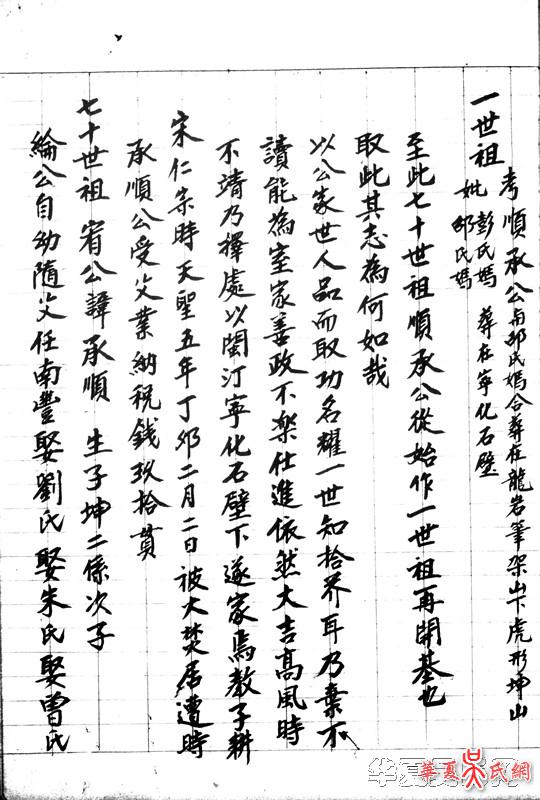 一世祖
考順承公與邱氏媽合葬在龍岩筆架山下虎形坤山
妣彭氏媽 葬在寧化石壁
邱氏媽
至此七十世祖順承公從始作一世祖再開基也
取此其志為何如哉
以公家世人品而取功名耀一世知拾芥耳乃棄不
讀能為室家善政不樂仕進依然大吉高風時
不靖乃擇處以閩汀寧化石壁下遂家焉教子耕
宋仁宗時天聖五年丁卯二月二日被火焚居遭時
承順公受父業納税錢玖拾貫
七十世祖宥公諱承順 生子坤二係次子
綸公自幼隨父任南豐娶劉氏娶朱氏娶曾氏
華夏吴氏網